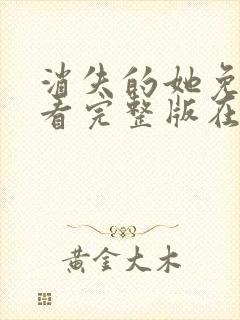 消失的她免
看完整版在
黄金大木